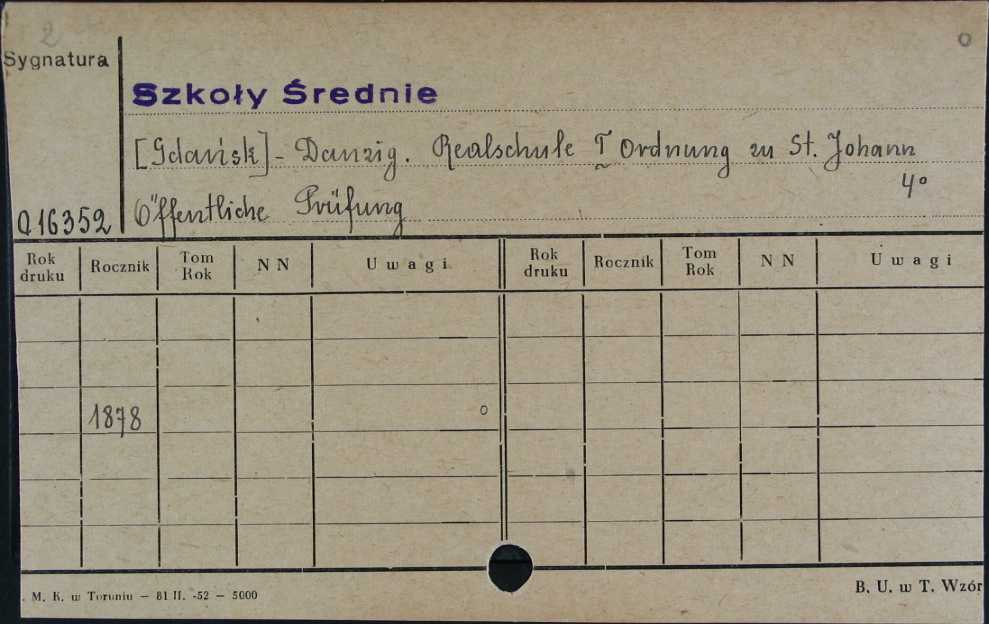 2
o
Sygnatura
Szkoły Średnie
[Gdańsk] - Danzig. Realschule I Ordnung zu St. Johann
4°
Q 16352
Öffentliche Prüfung
Rok druku Rocznik Tom Rok N N Uwagi Rok druku Rocznik Tom Rok N N Uwagi
1878 o
. M. K. w Toruniu — 81 II. -52 — 5000
B. U. w T. Wzór